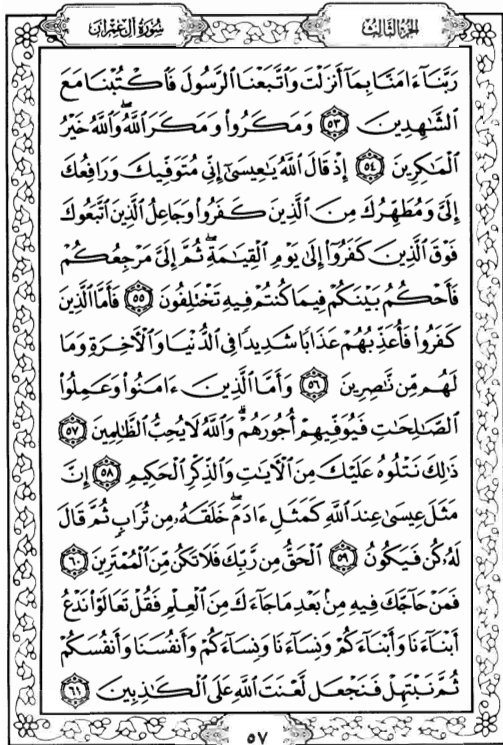 سورة آل عمران
الجزء الثالث
رَبَّنَآ ءَامَنَّا بِمَآ أَنزَلْتَ وَٱتَّبَعْنَا ٱلرَّسُولَ فَٱكْتُبْنَا مَعَ
ٱلشَّٰهِدِينَ ٥٣ وَمَكَرُوا۟ وَمَكَرَ ٱللَّهُ ۖ وَٱللَّهُ خَيْرُ
ٱلْمَٰكِرِينَ ٥٤ إِذْ قَالَ ٱللَّهُ يَٰعِيسَىٰٓ إِنِّى مُتَوَفِّيكَ وَرَافِعُكَ
إِلَىَّ وَمُطَهِّرُكَ مِنَ ٱلَّذِينَ كَفَرُوا۟ وَجَاعِلُ ٱلَّذِينَ ٱتَّبَعُوكَ
فَوْقَ ٱلَّذِينَ كَفَرُوٓا۟ إِلَىٰ يَوْمِ ٱلْقِيَٰمَةِ ۖ ثُمَّ إِلَىَّ مَرْجِعُكُمْ
فَأَحْكُمُ بَيْنَكُمْ فِيمَا كُنتُمْ فِيهِ تَخْتَلِفُونَ ٥٥ فَأَمَّا ٱلَّذِينَ
كَفَرُوا۟ فَأُعَذِّبُهُمْ عَذَابًا شَدِيدًا فِى ٱلدُّنْيَا وَٱلْءَاخِرَةِ وَمَا
لَهُم مِّن نَّٰصِرِينَ ٥٦ وَأَمَّا ٱلَّذِينَ ءَامَنُوا۟ وَعَمِلُوا۟
ٱلصَّٰلِحَٰتِ فَيُوَفِّيهِمْ أُجُورَهُمْ ۗ وَٱللَّهُ لَا يُحِبُّ ٱلظَّٰلِمِينَ ٥٧
ذَٰلِكَ نَتْلُوهُ عَلَيْكَ مِنَ ٱلْءَايَٰتِ وَٱلذِّكْرِ ٱلْحَكِيمِ ٥٨ إِنَّ
مَثَلَ عِيسَىٰ عِندَ ٱللَّهِ كَمَثَلِ ءَادَمَ ۖ خَلَقَهُۥ مِن تُرَابٍ ثُمَّ قَالَ
لَهُۥ كُن فَيَكُونُ ٥٩ ٱلْحَقُّ مِن رَّبِّكَ فَلَا تَكُن مِّنَ ٱلْمُمْتَرِينَ ٦٠
فَمَنْ حَآجَّكَ فِيهِ مِنۢ بَعْدِ مَا جَآءَكَ مِنَ ٱلْعِلْمِ فَقُلْ تَعَالَوْا۟ نَدْعُ
أَبْنَآءَنَا وَأَبْنَآءَكُمْ وَنِسَآءَنَا وَنِسَآءَكُمْ وَأَنفُسَنَا وَأَنفُسَكُمْ
ثُمَّ نَبْتَهِلْ فَنَجْعَل لَّعْنَتَ ٱللَّهِ عَلَى ٱلْكَٰذِبِينَ ٦١
٥٧